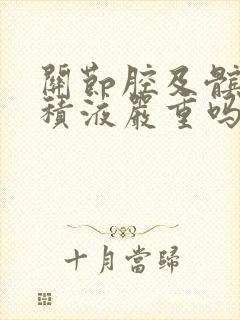 關節腔及髌
積液嚴重吗
十月當歸